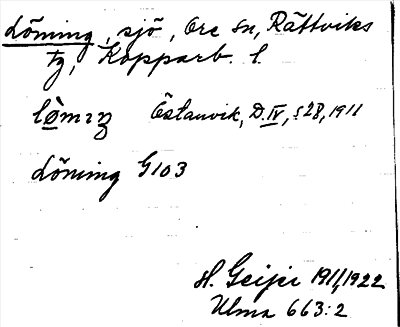 Löning, sjö, Ore sn, Rättviks
tg, Kopparb. l.
Östanvik, D. IV, s. 28, 1911
Löning G103
H. Geijer 1911, 1922
Ulma 663:2